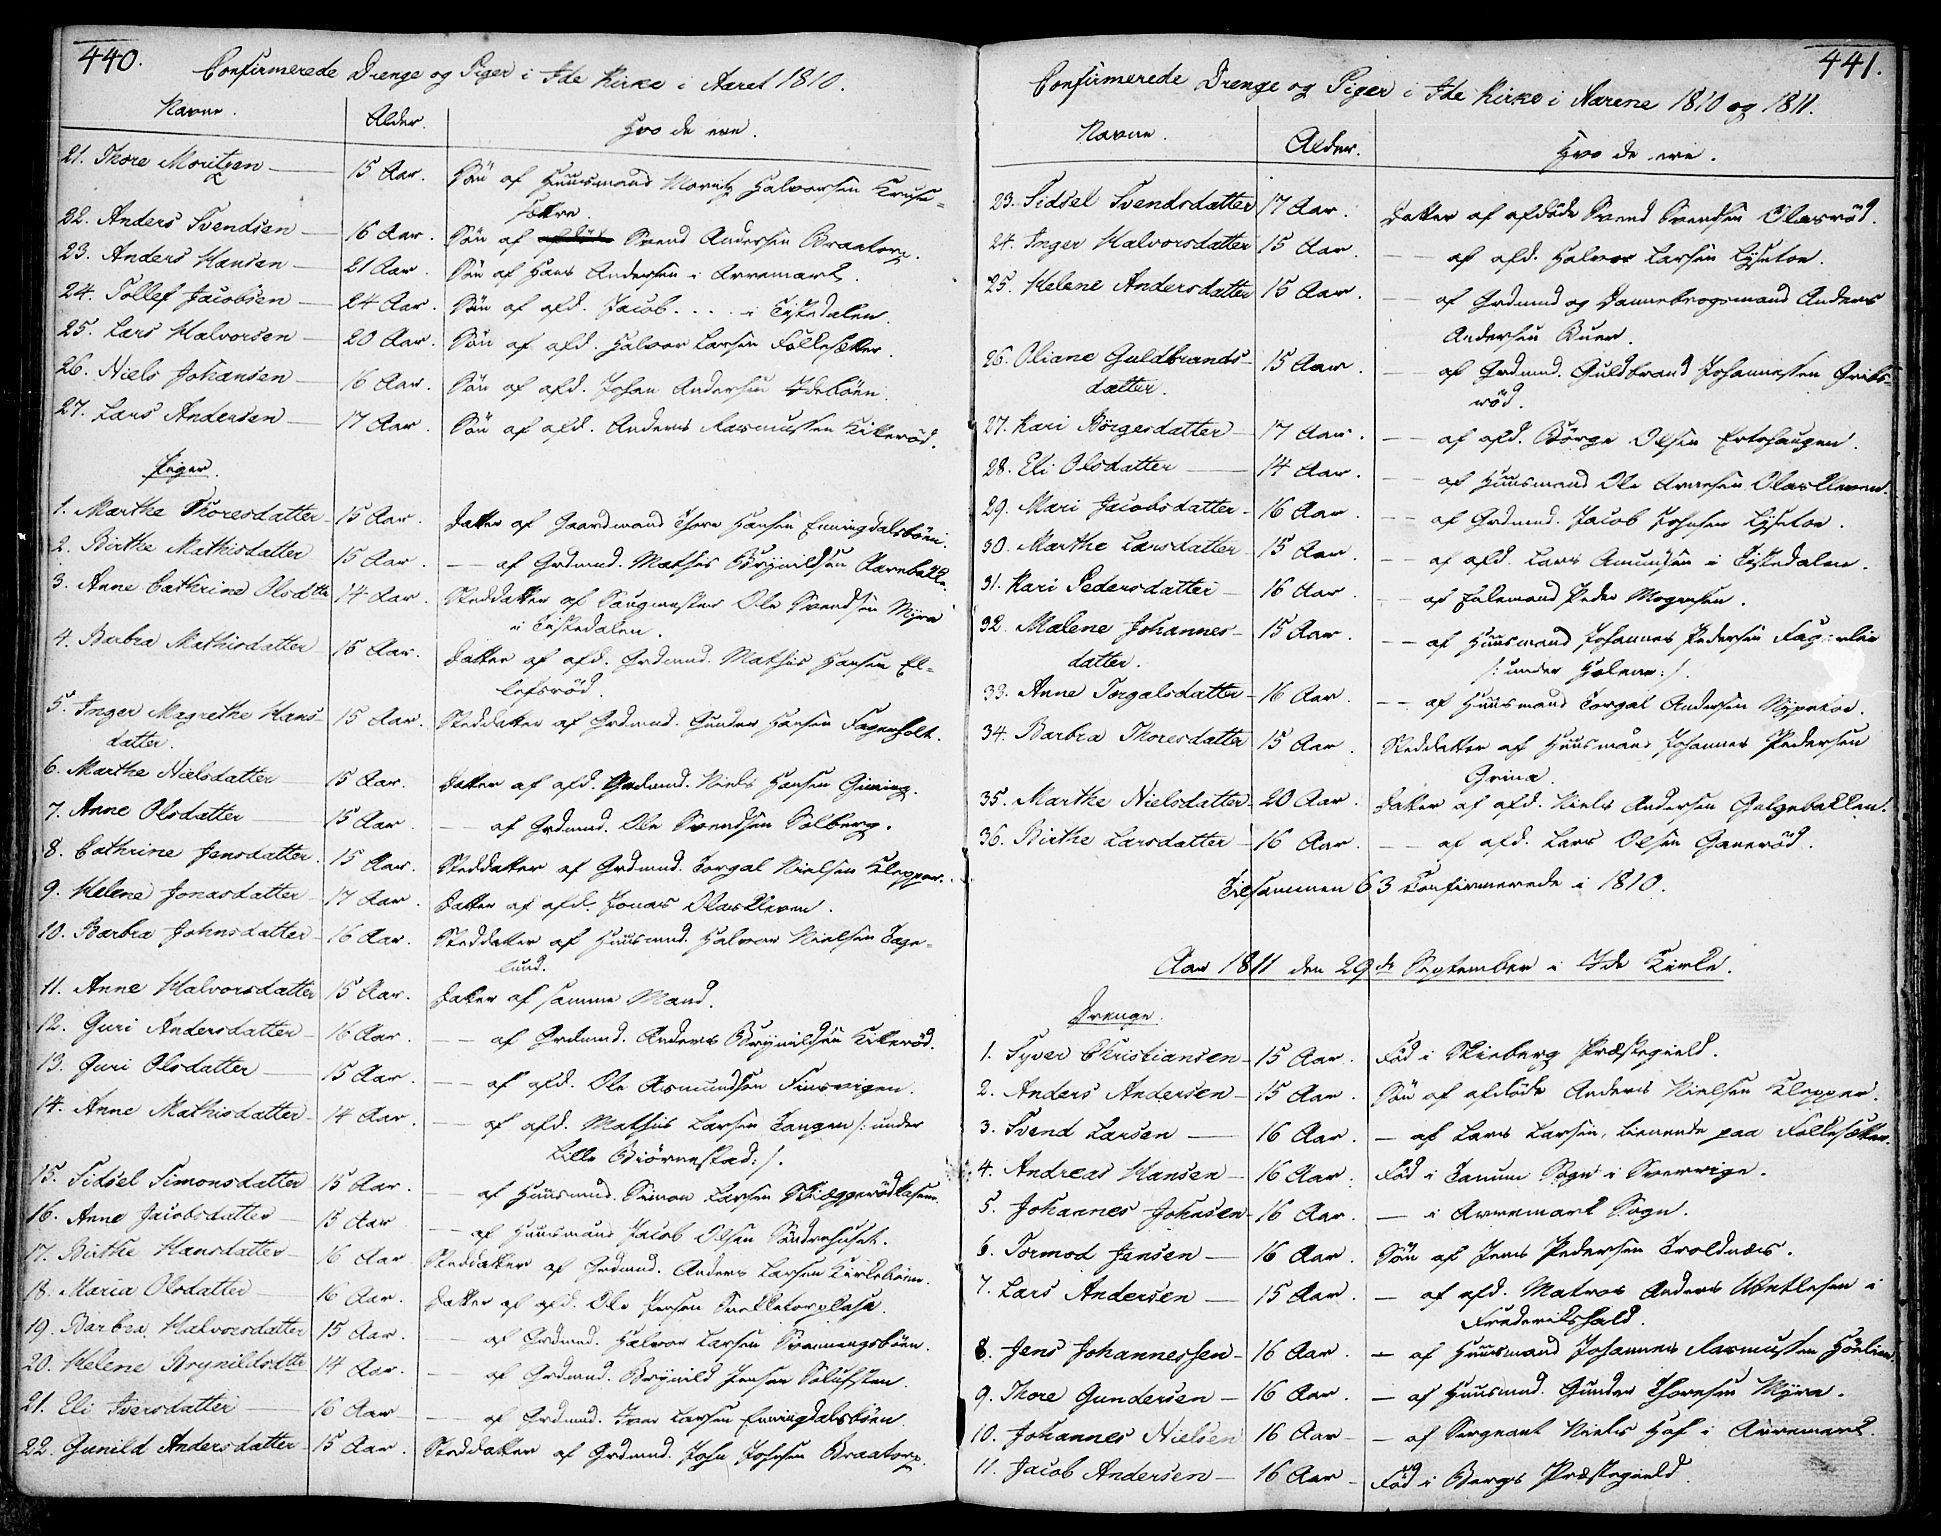 440.
Confirmerede Drenge og Piger i Ide Kirke i Aaret 1810.
Navne. Alder. Hvo de ere.
21. Thore Moritzen — 15 Aar. Søn af Huusmand Moritz Halvorsen Kruse-
sættre.
22. Anders Svendsen — 16 Aar. Søn af Svend Andersen Braatorp.
23. Anders Hansen — 21 Aar. Søn af Hans Andersen i Arremark
24. Tollef Jacobsen — 24 Aar. Søn af afd. Jacob . . . . i Tistedalen.
25. Lars Halvorsen — 20 Aar. Søn af afd. Halvor Larsen Follesætter.
26. Niels Johansen — 16 Aar. Søn af afd. Johan Andersen Idebøen.
27. Lars Andersen — 17 Aar. Søn af afd. Anders Rasmussen Kikerød.
Piger.
1. Marthe Thoresdatter — 15 Aar. Datter af Gaardmand Thore Hansen Enningdalsbøen.
2. Birthe Mathisdatter 15 Aar. — af Grdmd. Mathis Brynildsen Aarnebakke.
3. Anne Cathrine Olsdtter 14 Aar. Steddatter af Saugmester Ole Svendsen Myra
i Tistedalen.
4. Barbra Mathisdatter 15 Aar. Datter af afd. Grdmd. Mathis Hansen El-
lefsrød.
5. Inger Magrethe Hans- 15 Aar. Steddatter af Grdmd. Gunder Hansen Fagerholt.
datter.
6. Marthe Nielsdatter 15 Aar. Datter af afd. Grdmd. Niels Hansen
7. Anne Olsdatter 15 Aar. — af Grdmd. Ole Svendsen Solberg.
8. Cathrine Jensdatter. 15 Aar. Steddatter af Grdmd. Torgal Nielsen Klepper.
9. Helene Jonasdatter — 17 Aar. Datter af afd. Jonas Olaskleven.
10. Barbra Johnsdatter — 16 Aar. Steddatter af Huusmd. Halvor Nielsen Tage-
lund.
11. Anne Halvorsdatter 15 Aar. Datter af samme Mand.
12. Guri Andersdatter — 16 Aar. — af Grdmd. Anders Brynildsen Kikerød.
13. Guri Olsdatter — 15 Aar. — af afd. Ole Asmundsen Finsvigen.
14. Anne Mathisdatter — 14 Aar. — af afd. Mathis Larsen Tangen /: under
Lille Biørnestad :/.
15. Sidsel Simonsdatter 15 Aar. — af Huusmd. Simon Larsen Skiæggerødkasen.
16. Anne Jacobsdatter — 15 Aar — af Huusmand Jacob Olsen Søndrehuset.
17. Birthe Hansdatter — 16 Aar Steddatter af Grdmd. Anders Larsen Kirkebøen.
18. Maria Olsdatter — 16 Aar. Datter af afd. Ole Jensen
19. Barbra Halvorsdatter 15 Aar. — af Grdmd. Halvor Larsen
20. Helene Brynildsdtter 14 Aar. — af Grdmd. Brynild Jensen
21. Eli Iversdatter — 16 Aar — af Grdmd. Iver Larsen Enningdalsbøen.
22. Gunild Andersdatter — 15 Aar. Steddatter af Grdmd. John Johnsen Braatorp.
441.
Confirmerede Drenge og Piger i Ide Kirke i Aarene 1810 og 1811.
Navne. Alder. Hvo de ere.
23. Sidsel Svendsdatter 17 Aar. Datter af afdøde Svend Svendsen Olasrød.
24. Inger Halvorsdatter 15 Aar. — af afd. Halvor Larsen Lysetoe.
25. Helene Andersdatter 15 Aar. — af Grdmd og Dannebrogsmand Anders
Andersen Buer.
26. Oliane Guldbrands- 15 Aar. — af Grdmd. Guldbrand Johannessen Gribs-
rød.
datter.
27. Kari Børgesdatter — 17 Aar. — af afd. Børge Olsen Ertehaugen.
28. Eli Olsdatter — 14 Aar. — af Huusmand Ole Arnesen Olaskleven.
29. Mari Jacobsdatter — 16 Aar. — af Grdmd. Jacob Johnsen Lysetoe.
30. Marthe Larsdatter — 15 Aar. — af afd. Lars Amundsen i Tistedalen.
31. Kari Pedersdatter — 16 Aar. — af Peder Mogensen.
32. Malene Johannes- 15 Aar. — af Huusmand Johannes Pedersen
datter. /: under Holene :/.
33. Anne Torgalsdatter — 16 Aar. — af Huusmand Torgal Andersen
34. Barbra Thoresdatter 15 Aar. Steddatter af Huusmand Johannes Pedersen
Grina.
35. Marthe Nielsdatter — 20 Aar. Datter af afd. Niels Andersen Galgebakken.
36. Birthe Larsdatter — 16 Aar. — af afd. Lars Olsen Ganerød.
Tilsammen 63 Confirmerede i 1810.
Aar 1811 den 29de September i Ide Kirke.
Drenge.
1. Syver Christiansen — 15 Aar. Fød i Skieberg Præstegield.
2. Anders Andersen — 15 Aar. Søn af afdøde Anders Nielsen Klepper.
3. Svend Larsen — 16 Aar. — af Lars Larsen, tienende paa Follesætter.
4. Andreas Hansen — 16 Aar. Fød i Tanum Sogn i Sverrige.
5. Johannes Johnsen — 16 Aar. — i Arremark Sogn.
6. Tormod Jensen — 16 Aar. Søn af Jens Pedersen Troldnæs.
7. Lars Andersen — 15 Aar. — af afd. Matros Anders i
Frederikshald.
8. Jens Johannessen — 16 Aar. — af Huusmand Johannes Rasmussen Høelien.
9. Thore Gundersen — 16 Aar. — af Huusmd. Gunder Thoresen Myra.
10. Johannes Nielsen 16 Aar — — af Sergeant Niels Hof i Arremark.
11. Jacob Andersen — 16 Aar — Fød i Bergs Præstegield.